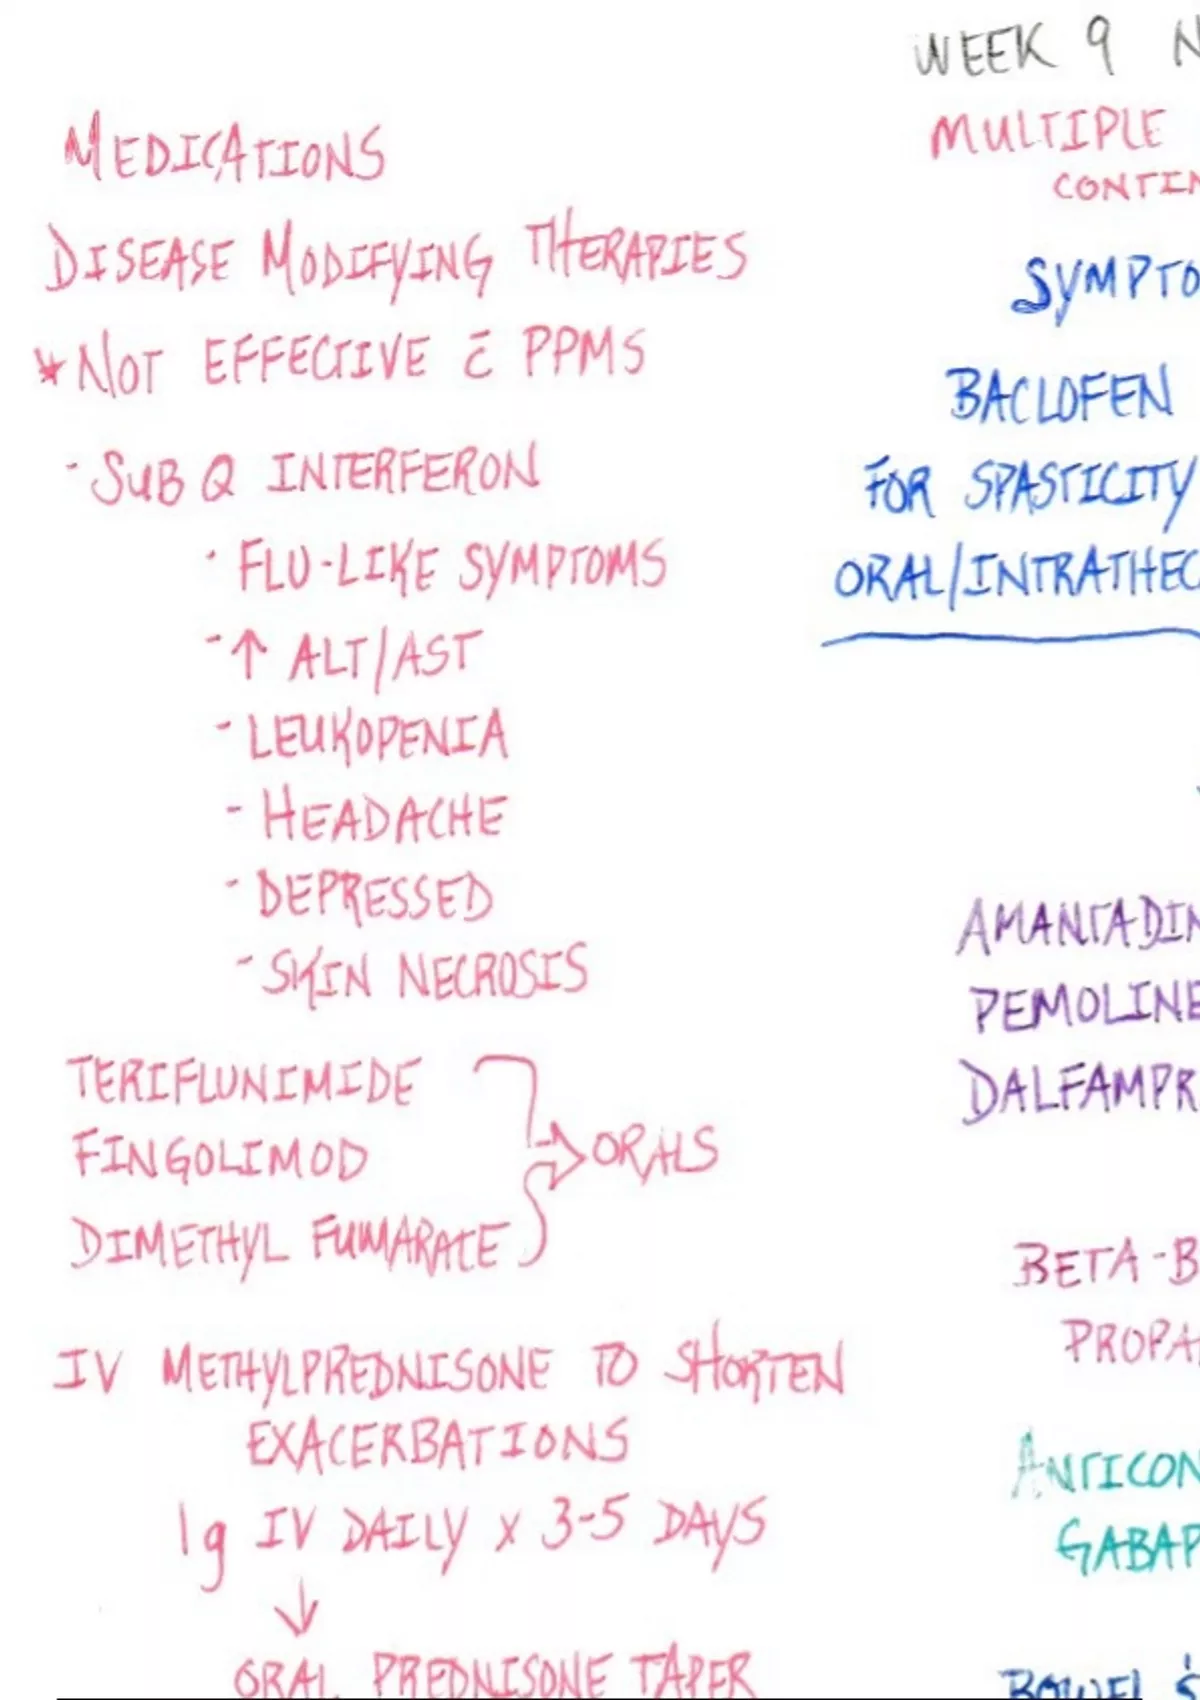 WEEK 9 N
MULTIPLE
CONTIN
MEDICATIONS
DISEASE MODIFYING THERAPIES
* NOT EFFECTIVE c̄ PPMS
- SUB Q INTERFERON
· FLU-LIKE SYMPTOMS
- ↑ ALT/AST
- LEUKOPENIA
- HEADACHE
- DEPRESSED
- SKIN NECROSIS
TERIFLUNIMIDE
FINGOLIMOD
DIMETHYL FUMARATE
→ ORALS
IV METHYLPREDNISONE TO SHORTEN
EXACERBATIONS
1g IV DAILY x 3-5 DAYS
↓
ORAL PREDNISONE TAPER
SYMPTO
BACLOFEN
FOR SPASTICITY
ORAL/INTRATHEC
AMANTADIN
PEMOLINE
DALFAMPR
BETA-B
PROPA
ANTICON
GABAP
BOWEL &